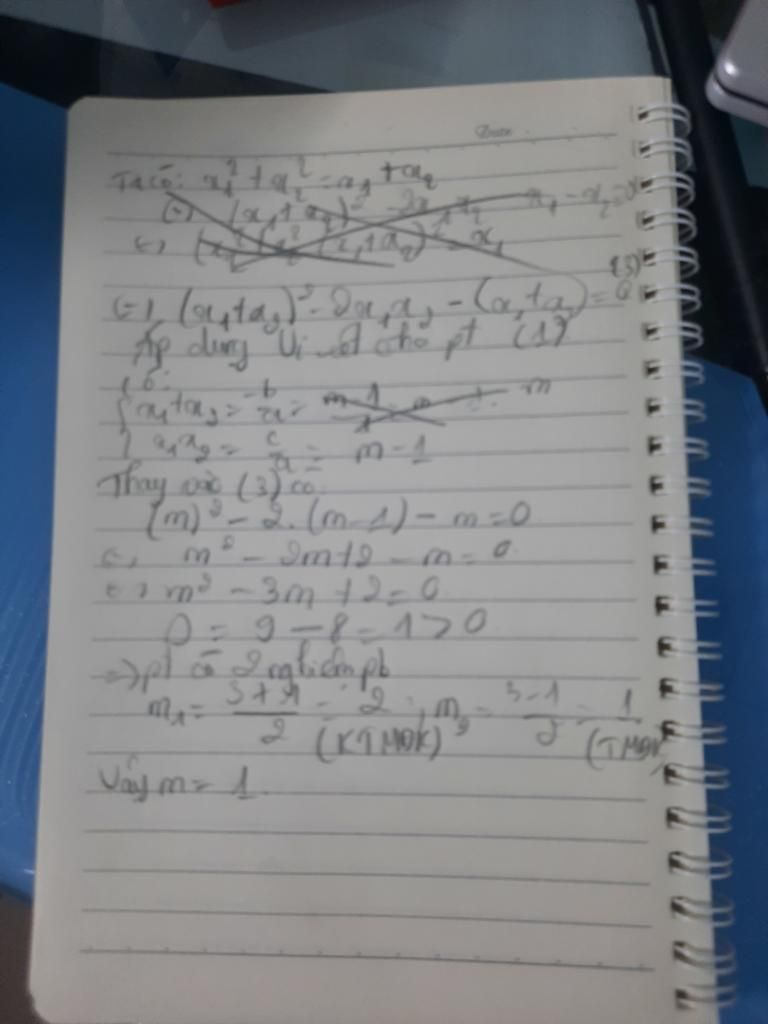 Date
Ta có: x₁² + x₂² = x₁ + x₂
(=) (x₁ + x₂)² - 2x₁x₂ - x₁ - x₂ = 0
(3)
(=) (x₁+x₂)² - 2x₁x₂ - (x₁+x₂) = 0
Áp dụng Vi-et cho pt (1)
Có:
x₁+x₂ = -b/a = m
x₁x₂ = c/a = m - 1
Thay vào (3) có
(m)² - 2.(m-1) - m = 0
(=) m² - 2m+2 - m = 0
(=) m² - 3m + 2 = 0
Δ = 9 - 8 = 1 > 0
=> pt có 2 nghiệm pb
m₁ = (3+1)/2 = 2 ; m₂ = (3-1)/2 = 1
(KTMĐK) (TMĐK)
Vậy m = 1